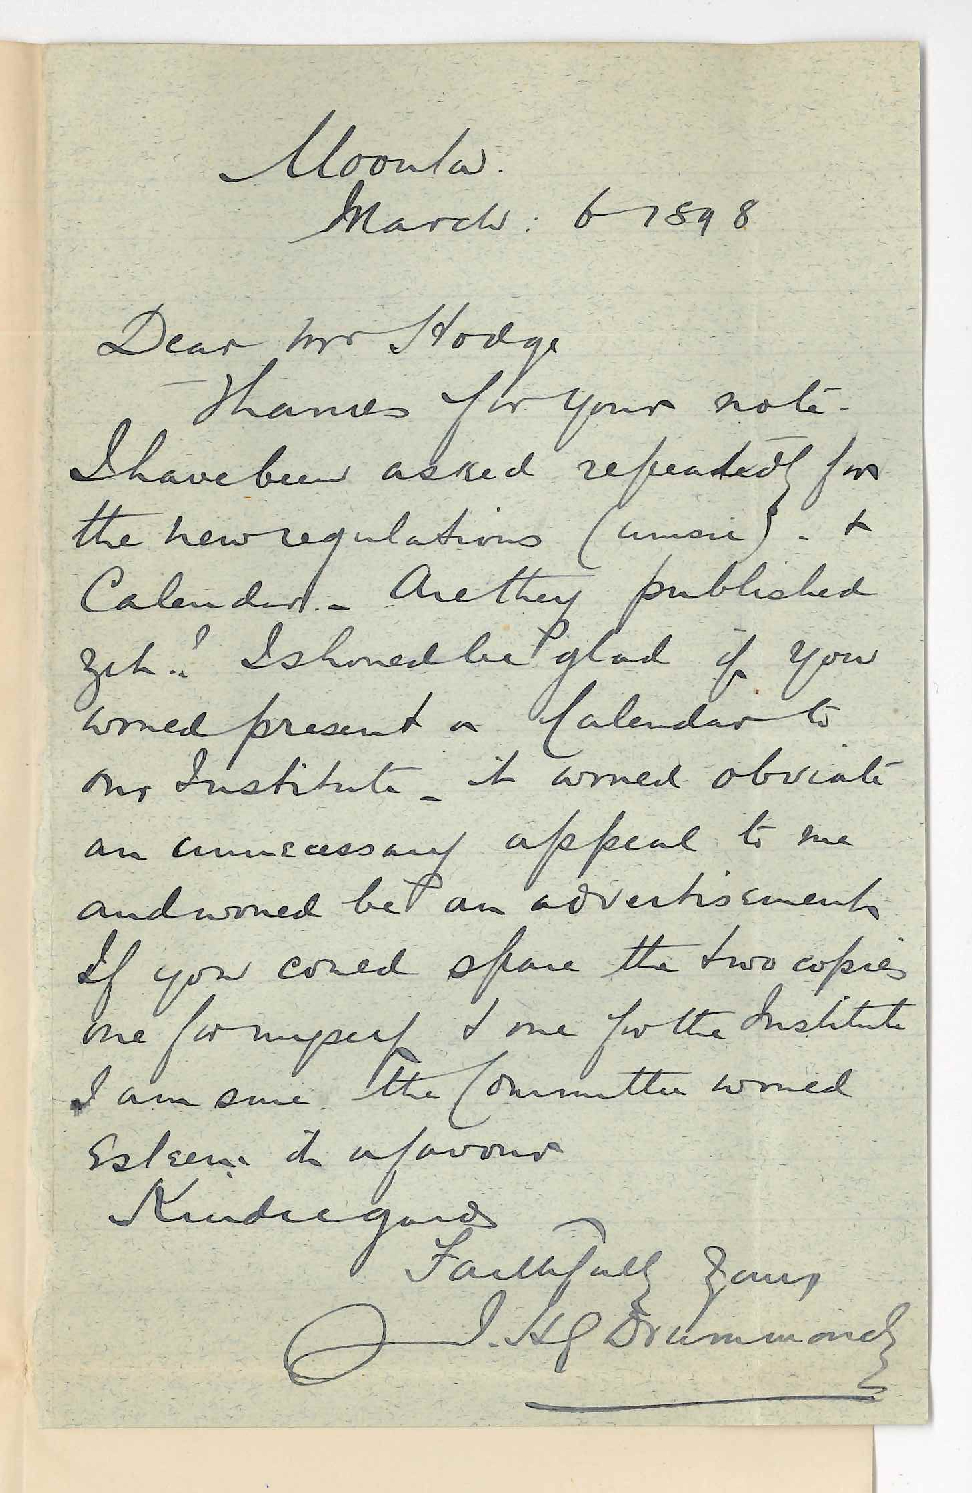 Moonta.
March: 6 1898
Dear Mr Hodge
Thanks for your note.
I have been asked repeatedly for
the new regulations (music). &
Calendar. - Are they published
yet.? I should be glad if you
would present a Calendar to
our Institute - it would obviate
an unnecessary appeal to me
and would be an advertisement
If you could spare the two copies
one for myself & one for the Institute
I am sure the Committee would
Esteem it a favour
Kind regards
Faithfully Yours
Drummond